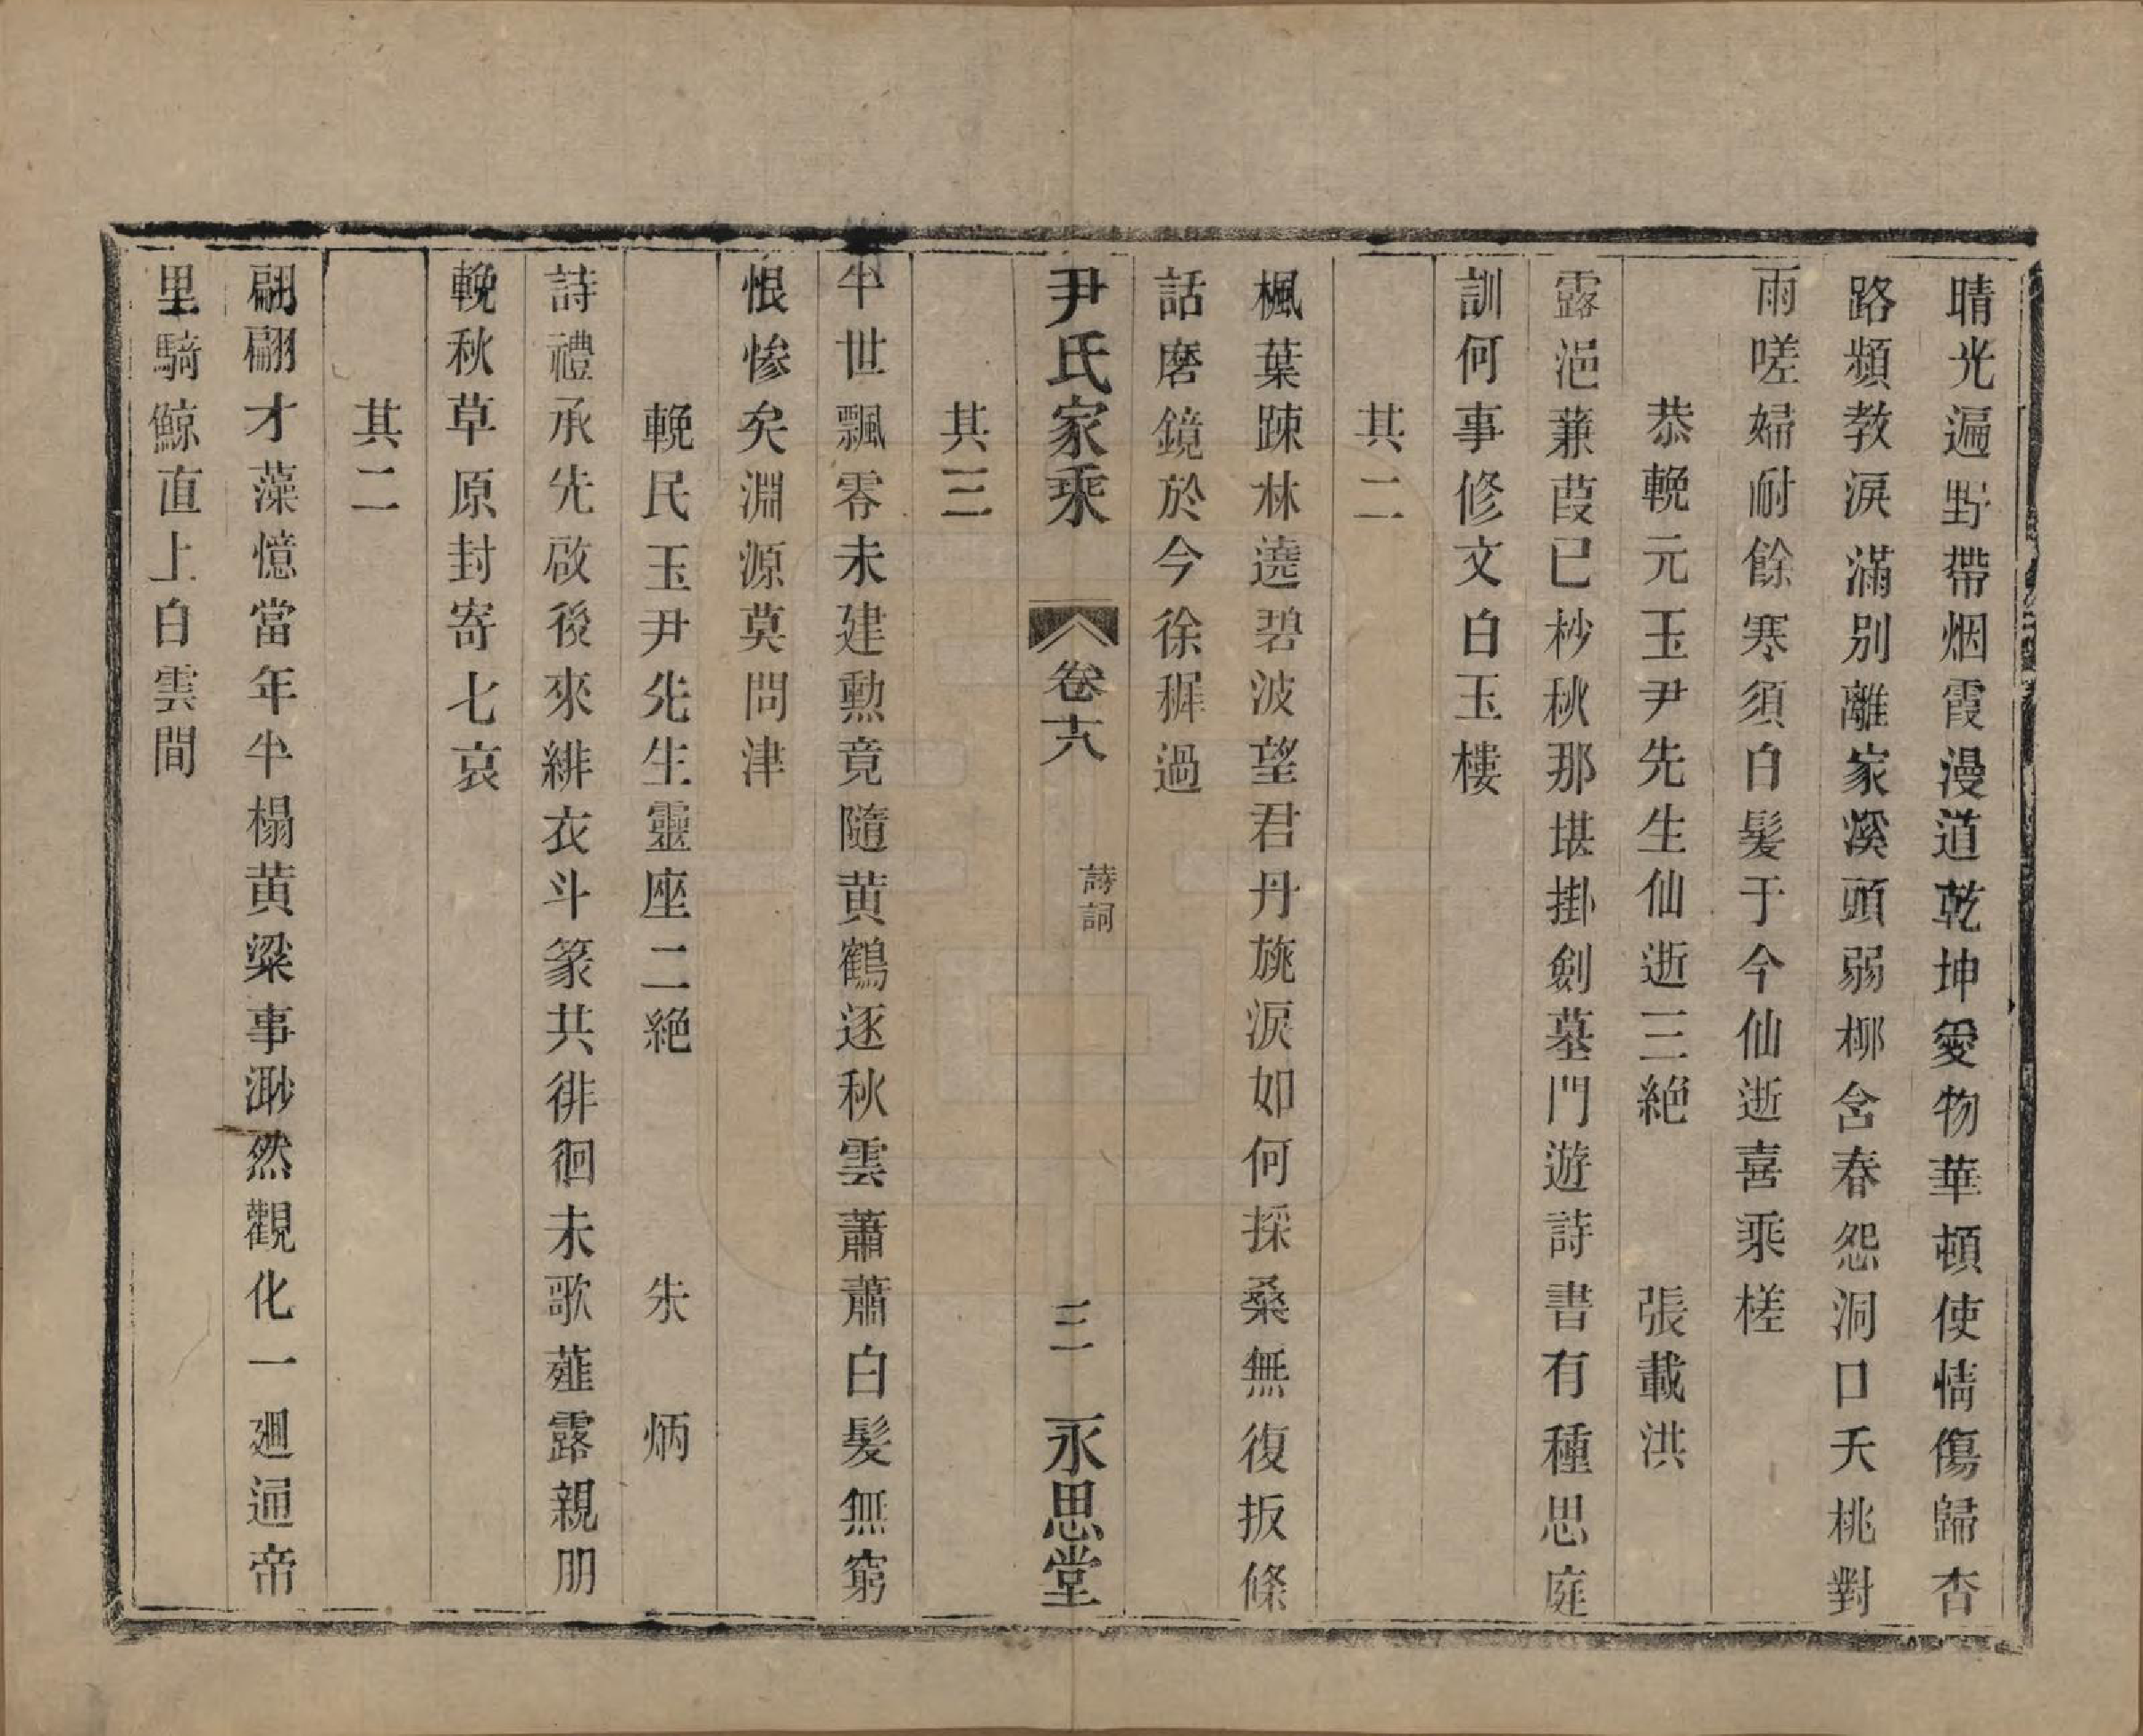 晴光遍野帶烟霞漫道乾坤愛物華頓使情傷歸杳
路頻教淚滿別離家溪頭弱柳含春怨洞口夭桃對
雨嗟婦耐餘寒須白髮于今仙逝喜乘槎
恭輓元玉尹先生仙逝三絕 張載洪
露浥蒹葭已杪秋那堪掛劍墓門遊詩書有種思庭
訓何事修文白玉樓
其二
楓葉踈林遶碧波望君丹旐淚如何採桑無復扳條
話磨鏡於今徐穉過
尹氏家乘 卷十八 詩詞 三 永思堂
其三
半世飄零未建勲竟隨黄鶴逐秋雲蕭蕭白髮無窮
恨慘矣淵源莫問津
輓民玉尹先生靈座二絕 朱炳
詩禮承先啟後來緋衣斗篆共徘徊未歌薤露親朋
輓秋草原封寄七哀
其二
翩翩才藻憶當年半榻黄粱事渺然觀化一廻通帝
里騎鯨直上白雲間